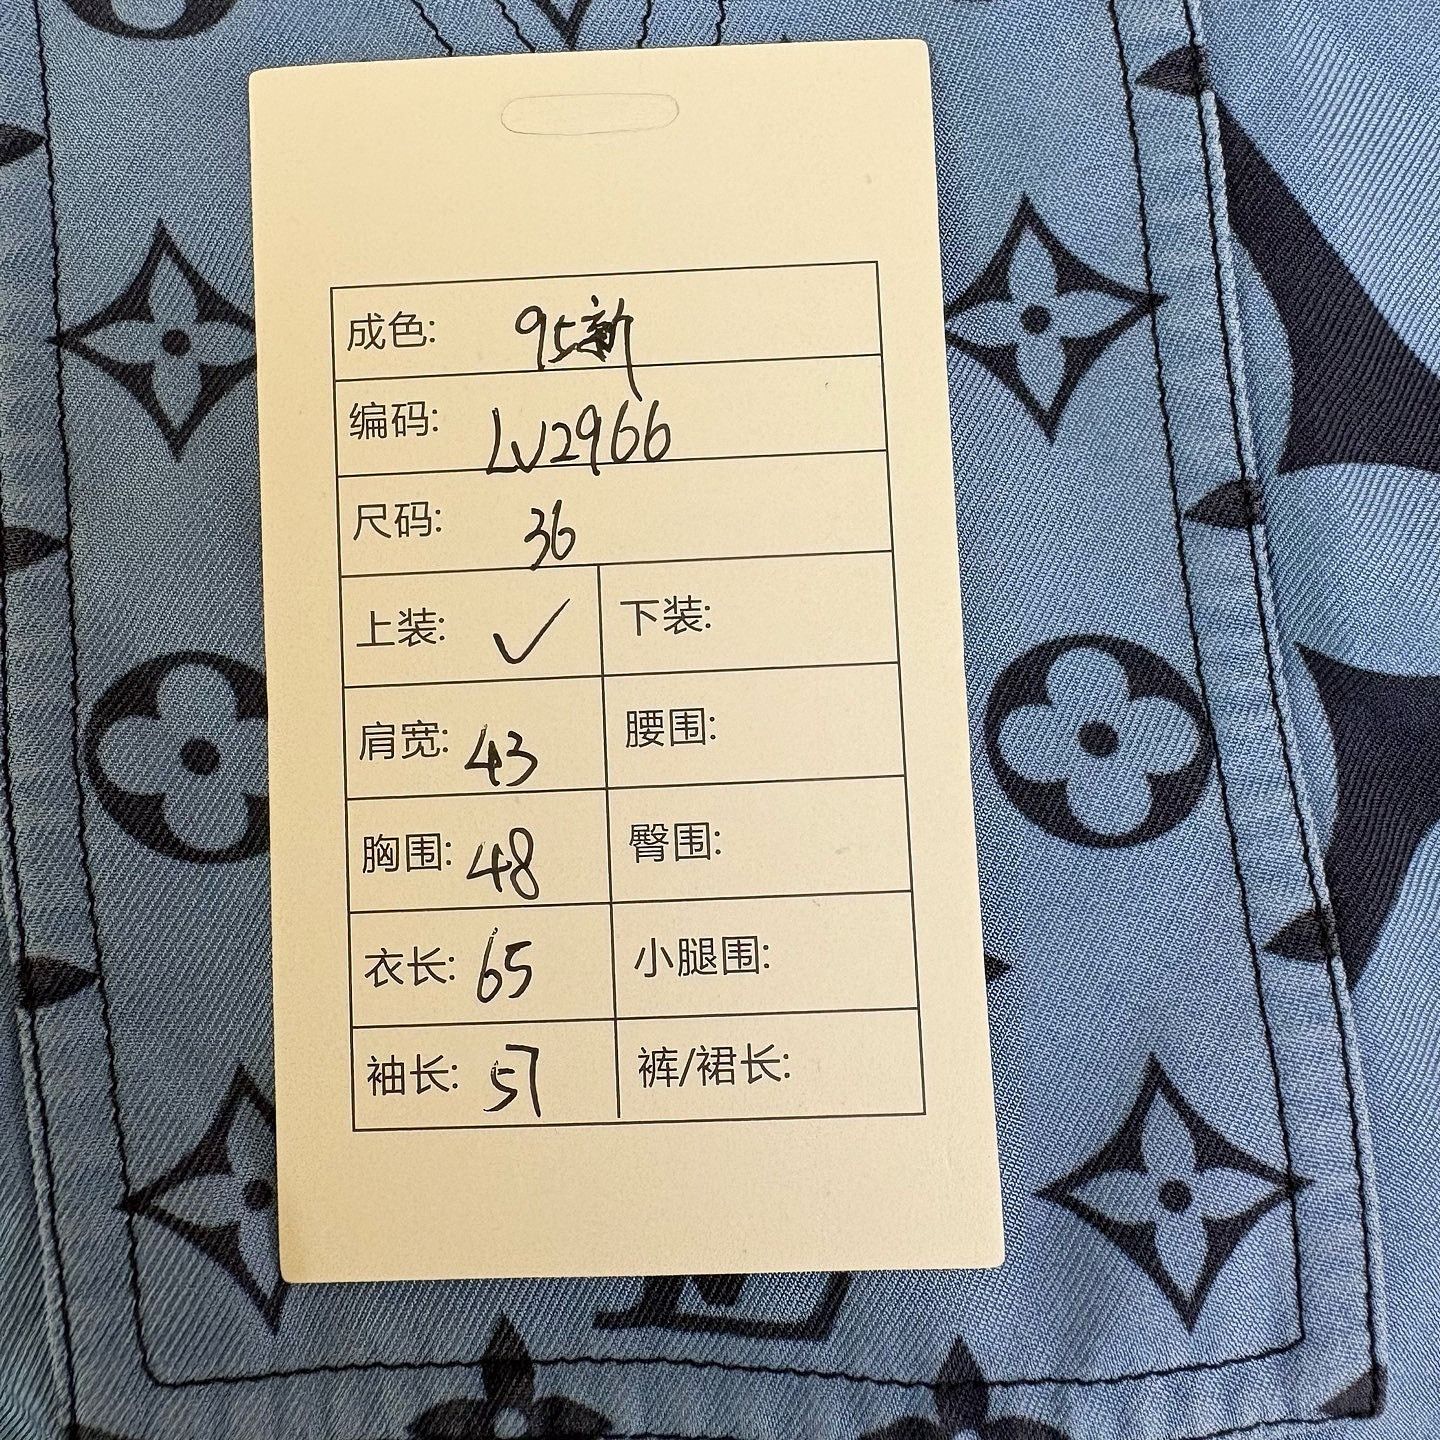 成色: 95新
编码: LV2966
尺码: 36
上装: ✓ 下装:
肩宽: 43 腰围:
胸围: 48 臀围:
衣长: 65 小腿围:
袖长: 57 裤/裙长: